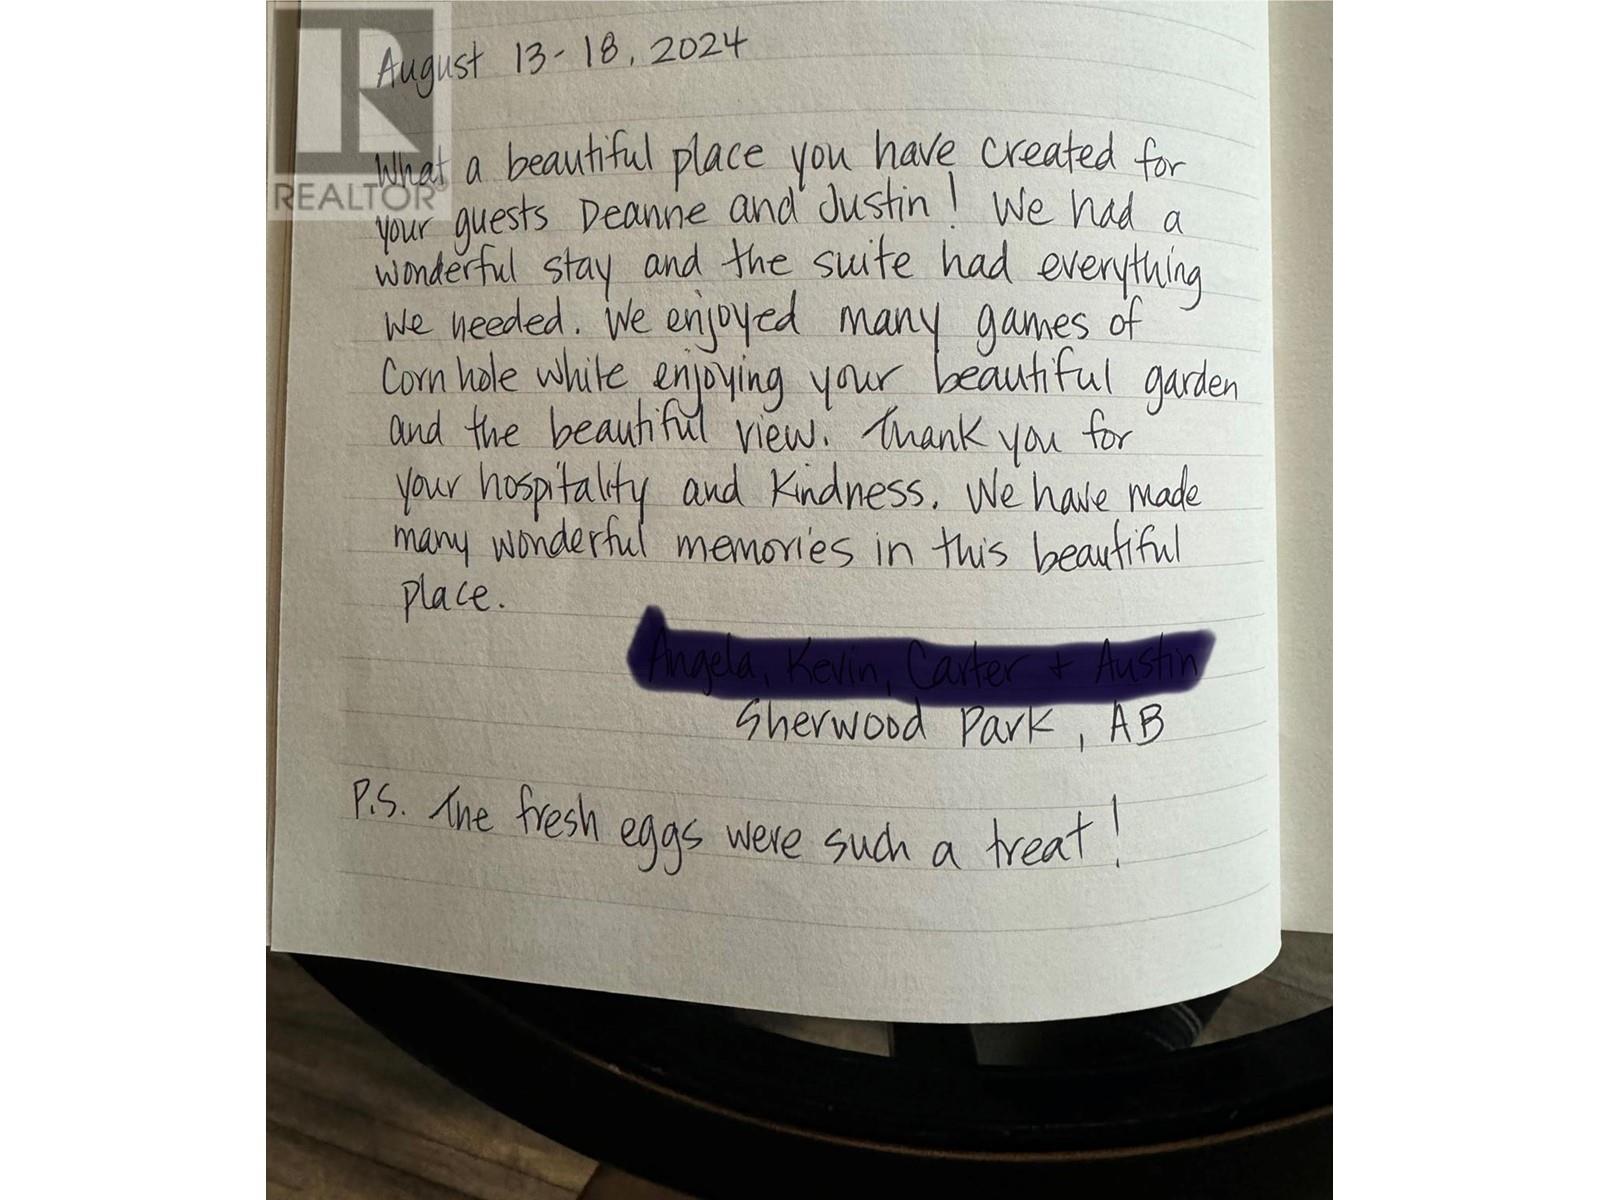 REALTOR®
August 13-18, 2024
What a beautiful place you have created for
your guests Deanne and Justin! We had a
wonderful stay and the suite had everything
we needed. We enjoyed many games of
Corn hole while enjoying your beautiful garden
and the beautiful view. Thank you for
your hospitality and kindness. We have made
many wonderful memories in this beautiful
place.
Angela, Kevin, Carter + Austin
Sherwood Park, AB
P.S. The fresh eggs were such a treat!